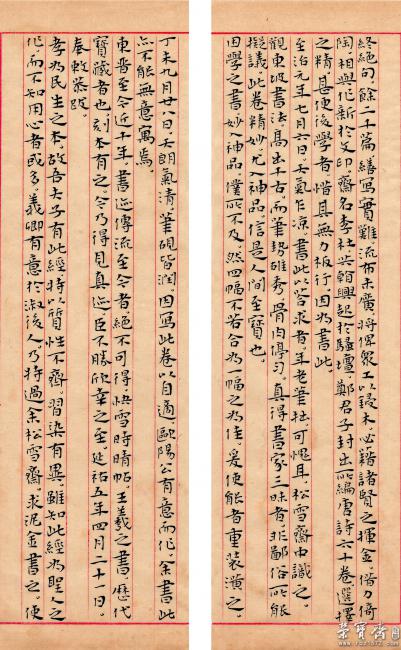 終絕句，餘二十篇，繕寫實難，流布未廣，將俾衆工以鋟木，必籍諸賢之揮金，借力倚
陶，相與作新於文印齋，名李杜共賴興起於騷壇，鄭君子封出所編唐詩六十卷，選擇
之精，甚便後學者，惜其無力板行，因爲書此。
至治元年七月六日，天氣乍涼，書此以答求者，年老筆拙可愧耳，松雪齋中識之。
觀東坡書法，高出千古，而筆勢雄秀，骨肉停勻，真得書家三昧者，非鄙俗所能
擬議，此卷精妙尤入神品，信是人間至寶也。
因學之書妙入神品，僕所不及，然四幅不若合爲一幅之爲佳，爰使能者重裝潢之。
丁未九月廿八日，天朗氣清，筆硯皆潤，因寫此卷以自適，歐陽公有意而作，余書此
亦不能無意寓焉
東晉至今近千年，書迹傳流至今者，絕不可得，快雪時晴帖，王羲之書，歷代
寶藏者也，刻本有之，今乃得見真迹，臣不勝欣幸之至，延祐五年四月二十日，
奉敕恭跋
孝爲民生之本，故吾夫子有此經，特以質性不齊，習染有異，雖知此經爲聖人之
作，而不知用心者或多，義卿有意於淑後人，乃特過余松雪齋，求泥金書之，使
榮寶齋